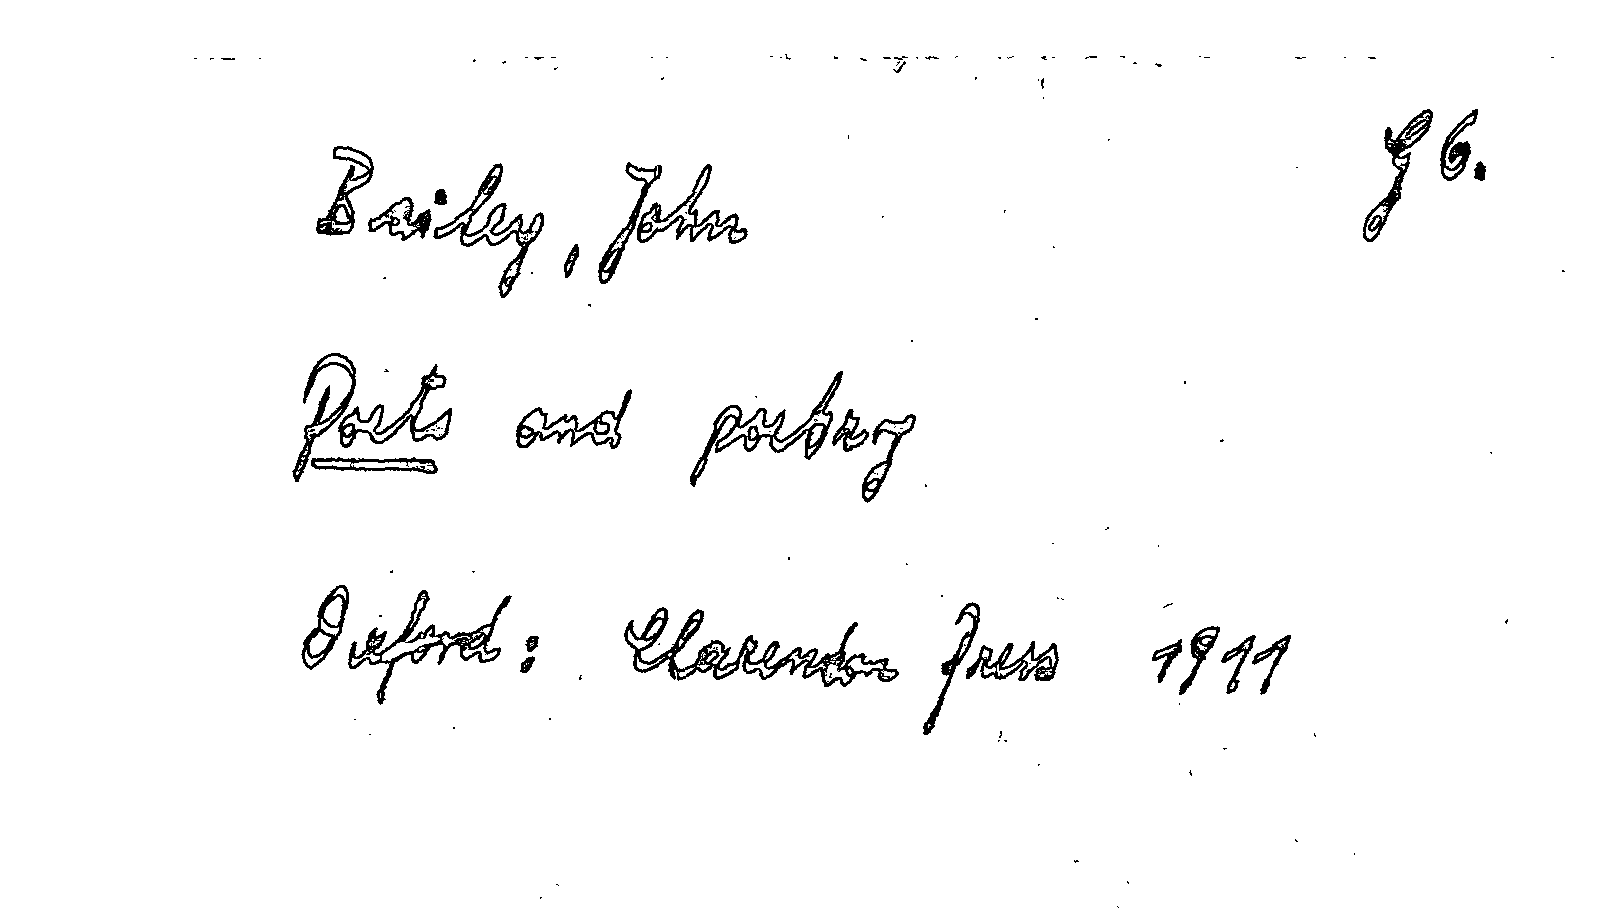 G 6.
Bailey, John
Poets and poetry
Oxford: Clarendon Press 1911